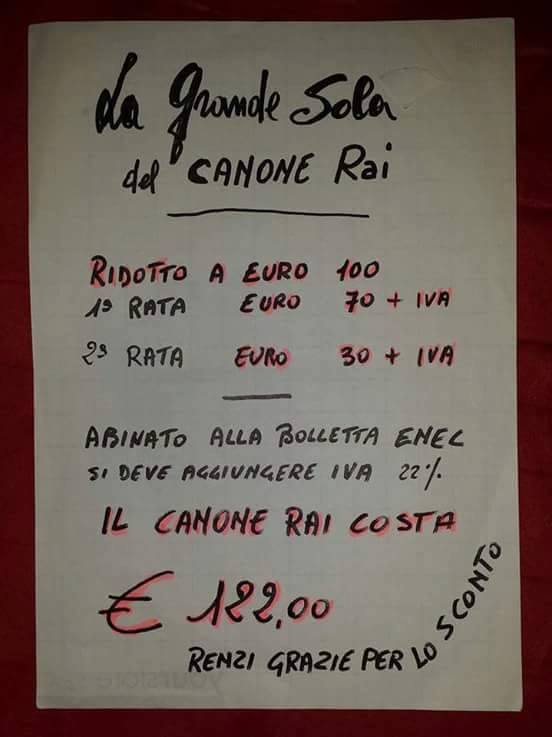 La grande Sola
del CANONE Rai
RIDOTTO A EURO 100
1ª RATA EURO 70 + IVA
2ª RATA EURO 30 + IVA
ABINATO ALLA BOLLETTA ENEL
SI DEVE AGGIUNGERE IVA 22%
IL CANONE RAI COSTA
€ 122,00
RENZI GRAZIE PER LO SCONTO